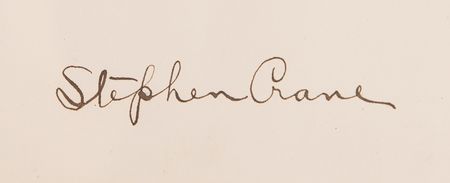 Stephen Crane